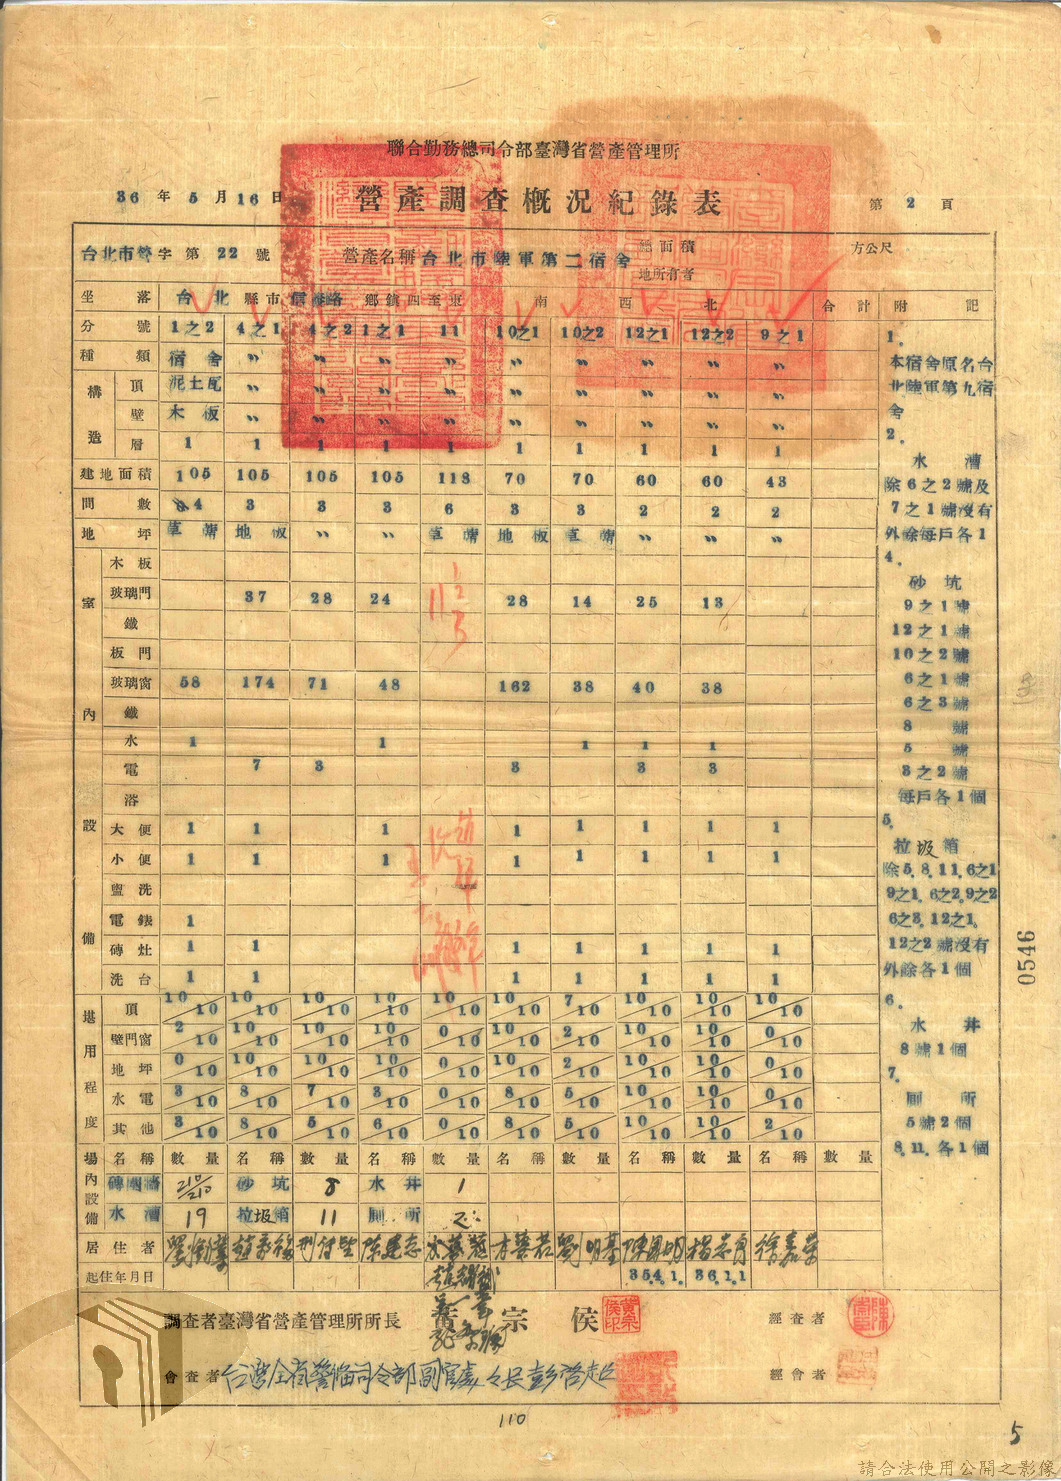 聯合勤務總司令部臺灣省營產管理所
36 年 5 月 16 日 營產調查概況紀錄表 第 2 頁
台北市營字第 22 號 營產名稱 台北市陸軍第二宿舍 總面積 方公尺
地所有者
坐落 台北 縣市 信義路 鄉鎮 四至東 南 西 北 合計 附記
分號 1之2 4之1 4之2 1之1 11 10之1 10之2 12之1 12之2 9之1
種類 宿舍 〃 〃 〃 〃 〃 〃 〃 〃 〃
構造 頂 泥土瓦 〃 〃 〃 〃 〃 〃 〃 〃 〃
壁 木板 〃 〃 〃 〃 〃 〃 〃 〃 〃
層 1 1 1 1 1 1 1 1 1 1
建地面積 105 105 105 105 118 70 70 60 60 43
間數 4 3 3 3 6 3 3 2 2 2
地坪 草蓆 地板 〃 〃 草蓆 地板 草蓆 〃 〃 〃
室內設備
木板
玻璃門 37 28 24 28 14 25 13
鐵
板門
玻璃窗 58 174 71 48 162 38 40 38
鐵
水 1 1 1 1 1
電 7 3 3 3 3
浴
大便 1 1 1 1 1 1 1 1
小便 1 1 1 1 1 1 1 1
盥洗
電錶 1
磚灶 1 1 1 1 1 1 1
洗台 1 1 1 1 1 1 1
堪用程度
頂 10/10 10/10 10/10 10/10 10/10 10/10 7/10 10/10 10/10 10/10
壁門窗 2/10 10/10 10/10 10/10 0/10 10/10 2/10 10/10 10/10 0/10
地坪 0/10 10/10 10/10 10/10 0/10 10/10 2/10 10/10 10/10 0/10
水電 3/10 8/10 7/10 3/10 0/10 8/10 5/10 10/10 10/10 0/10
其他 3/10 8/10 5/10 6/10 0/10 8/10 5/10 10/10 10/10 2/10
場內設備 名稱 數量 名稱 數量 名稱 數量 名稱 數量 名稱 數量 名稱 數量
210/210 砂坑 8 水井 1
水漕 19 拉圾箱 11 厠所 2
居住者 劉明基 楊忠勇 徐嘉榮
起住年月日 35.4.1. 36.1.1
1.
本宿舍原名台
北陸軍第九宿
舍
2.
水漕
除6之2號及
7之1號沒有
外除每戶各1
4.
砂坑
9之1號
12之1號
10之2號
6之1號
6之3號
8 號
5 號
3之2號
每戶各1個
5.
拉圾箱
除5.8.11.6之1
9之1.6之2.9之2
6之3.12之1.
12之2號沒有
外除各1個
6.
水井
8號1個
7.
厠所
5號2個
8.11.各1個
調查者臺灣省營產管理所所長 黃宗侯 經查者
會查者 台灣全省警備司令部副官處處長彭啓超 經會者
110
5
0546
請合法使用公開之影像